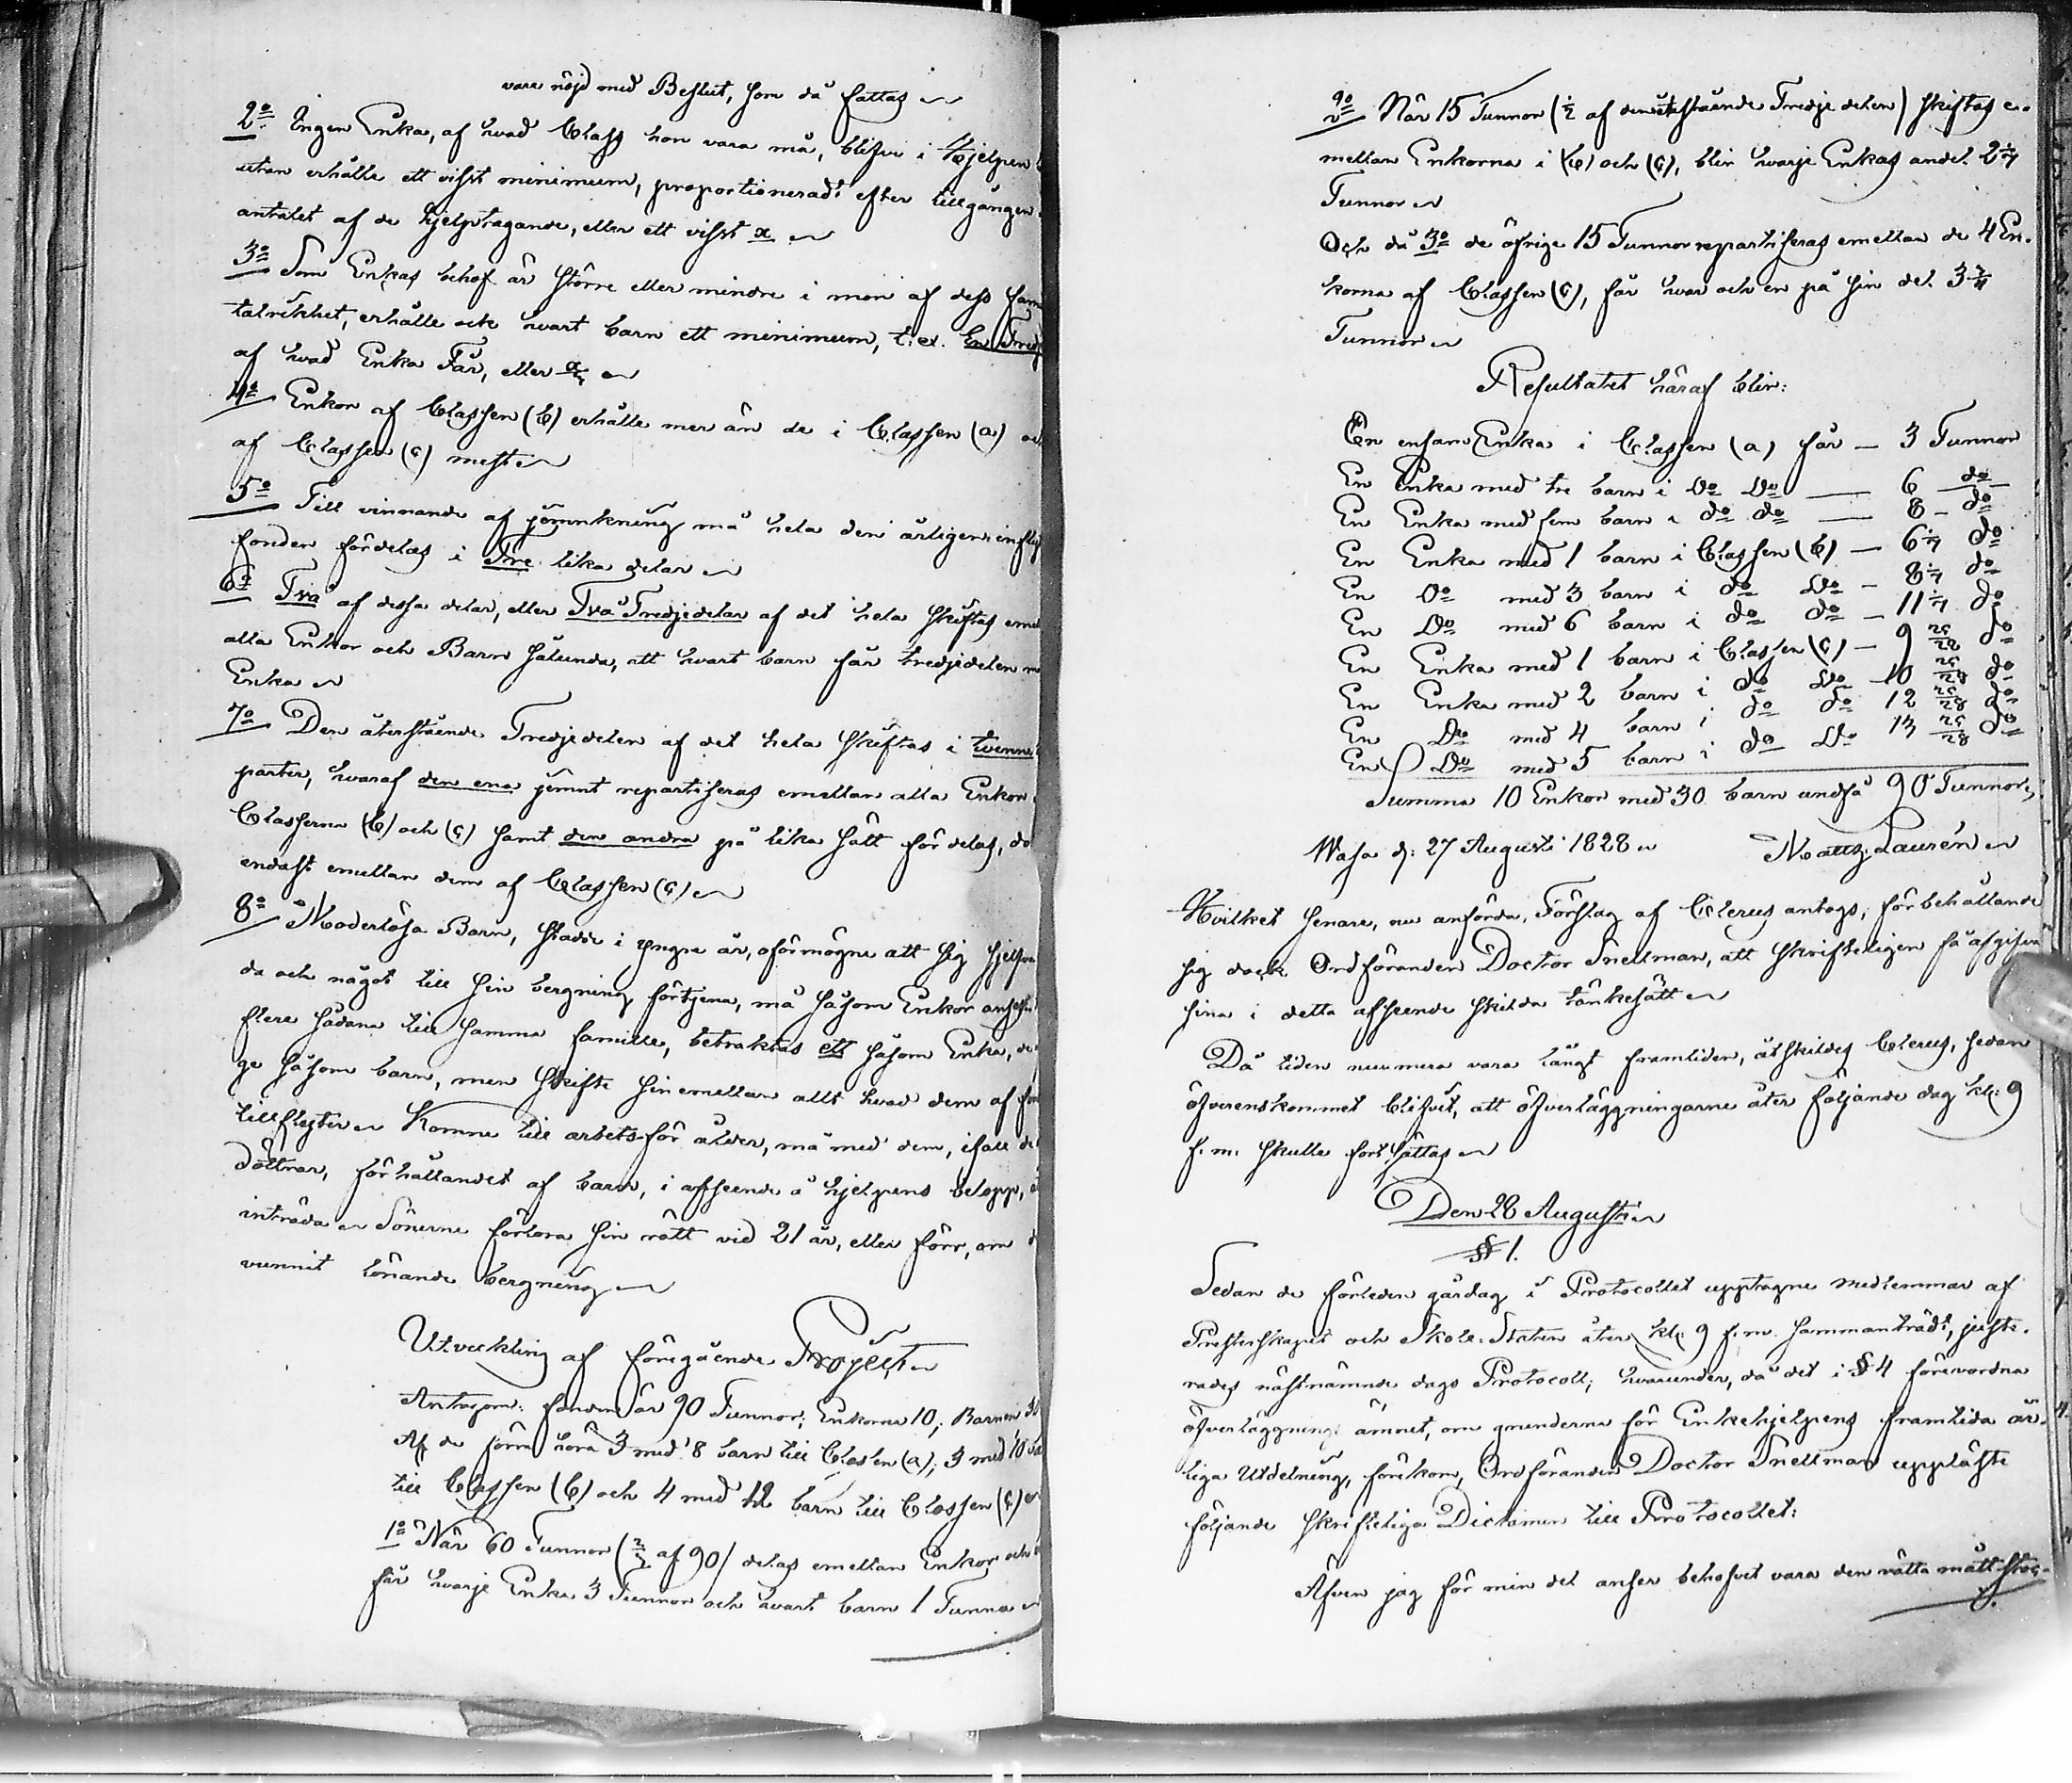 vare nöjd med Beslut, som då fattas
2:o Ingen Enka, af hvad Class hon vara må, blifve i Hjelpen
utan erhålle ett visst minimum, proportioneradt efter tillgången
antalet af de hjelptagande, eller ett visst x
3:o Som Enkas behof är större eller mindre i mon af dess
talrikhet, erhålle ock hvart barn ett minimum, t. ex. En
af hvad Enka Får, eller
4:o Enkor af Classen (b) erhålle mer än de i Classen (a)
af Classen (c) mest
5:o Till vinnande af jemnkning må hela den årligen
fonden fördelas i Tre lika delar
6:o Två af dessa delar, eller Två Tredjedelar af det hela skiftas
alla Enkor och Barn sålunda, att hvart barn får tredjedelen
Enka
7:o Den återstående Tredjedelen af det hela skiftas i tvenne
parter, hvaraf den ena jemnt repartiseras emellan alla Enkor
Classerna (b) och (c) samt den andra på lika sätt fördelas,
endast emellan dem af Classen (c)
8:o Moderlösa Barn, stadde i yngre år, oförmögne att sig
da och något till sin bergning förtjena, må såsom Enkor
flere sådana till samma famille, betraktas ett såsom Enka,
ge såsom barn, men skifte sinemellan allt hvad dem af
tillflyter Komne till arbetsför ålder, må med dem, ifall
döttrar, förhållandet af barn, i afseende å hjelpens belopp,
inträda Sönerne förlora sin rätt vid 21 år, eller förr, om
vunnit lönande bergning
Utveckling af föregående Project
Antagom: fonden är 90 Tunnor; Enkorna 10; Barnen
Af de förra höra 3 med 8 barn till Classen (a); 3 med 10
till Classen (b) och 4 med 12 barn till Classen (c)
1:o När 60 Tunnor (2/3 af 90) delas emellan Enkor och
får hvarje Enka 3 Tunnor och hvart barn 1 Tunna
2:o När 15 Tunnor (1/2 af den återstående Tredjedelen) skiftas e-
mellan Enkorna i (b) och (c), blir hvarje Enkas andel 2 1/7
Tunnor
Och då 3:o de öfrige 15 Tunnor repartiseras emellan de 4 En-
korna af Classen (c), får hvar och en på sin del 3 3/4
Tunnor
Resultatet häraf blir:
En ensam Enka i Classen (a) får — 3 Tunnor
En Enka med tre barn i D:o D:o — 6 d:o
En Enka med fem barn i d:o d:o — 8 - d:o
En Enka med 1 barn i Classen (b) — 6 1/7 d:o
En D:o med 3 barn i d:o D:o - 8 1/7 d:o
En D:o med 6 barn i d:o d:o - 11 1/7 d:o
En Enka med 1 barn i Classen (c) — 9 25/28 d:o
En Enka med 2 barn i d:o D:o 10 25/28 d:o
En D:o med 4 barn i d:o d:o 12 25/28 d:o
En D:o med 5 barn i d:o D:o 13 25/28 d:o
Summa 10 Enkor med 30 barn undfå 90 Tunnor
Wasa d: 27 Augusti 1828 Matts Laurén
Hvilket senare, nu anförda, Förslag af Clerus antogs, förbehållande
sig dock Ordföranden Doctor Snellman, att skrifteligen få afgifva
sina i detta afseende skilda tänkesätt
Då tiden nu mera vara långt framliden, åtskildes Clerus, sedan
öfverenskommet blifvit, att öfverläggningarne åter följande dag kl: 9
f. m. skulle fortsättas
Den 28 Augusti
§ 1.
Sedan de förleden gårdag i Protocollet upptagne medlemmar af
Presterskapet och Skole-Staten åter kl: 9 f. m. sammanträdt, juste-
rades nästnämnde dags Protocoll; hvarunder, då det i § 4 förevordna
öfverläggnings ämnet, om grunderna för Enkehjelpens framtida år-
liga Utdelning, förekom, Ordföranden Doctor Snellman uppläste
följande skrifteliga Dictamen till Protocollet:
Äfven jag för min del anser behofvet vara den rätta måttstoc-